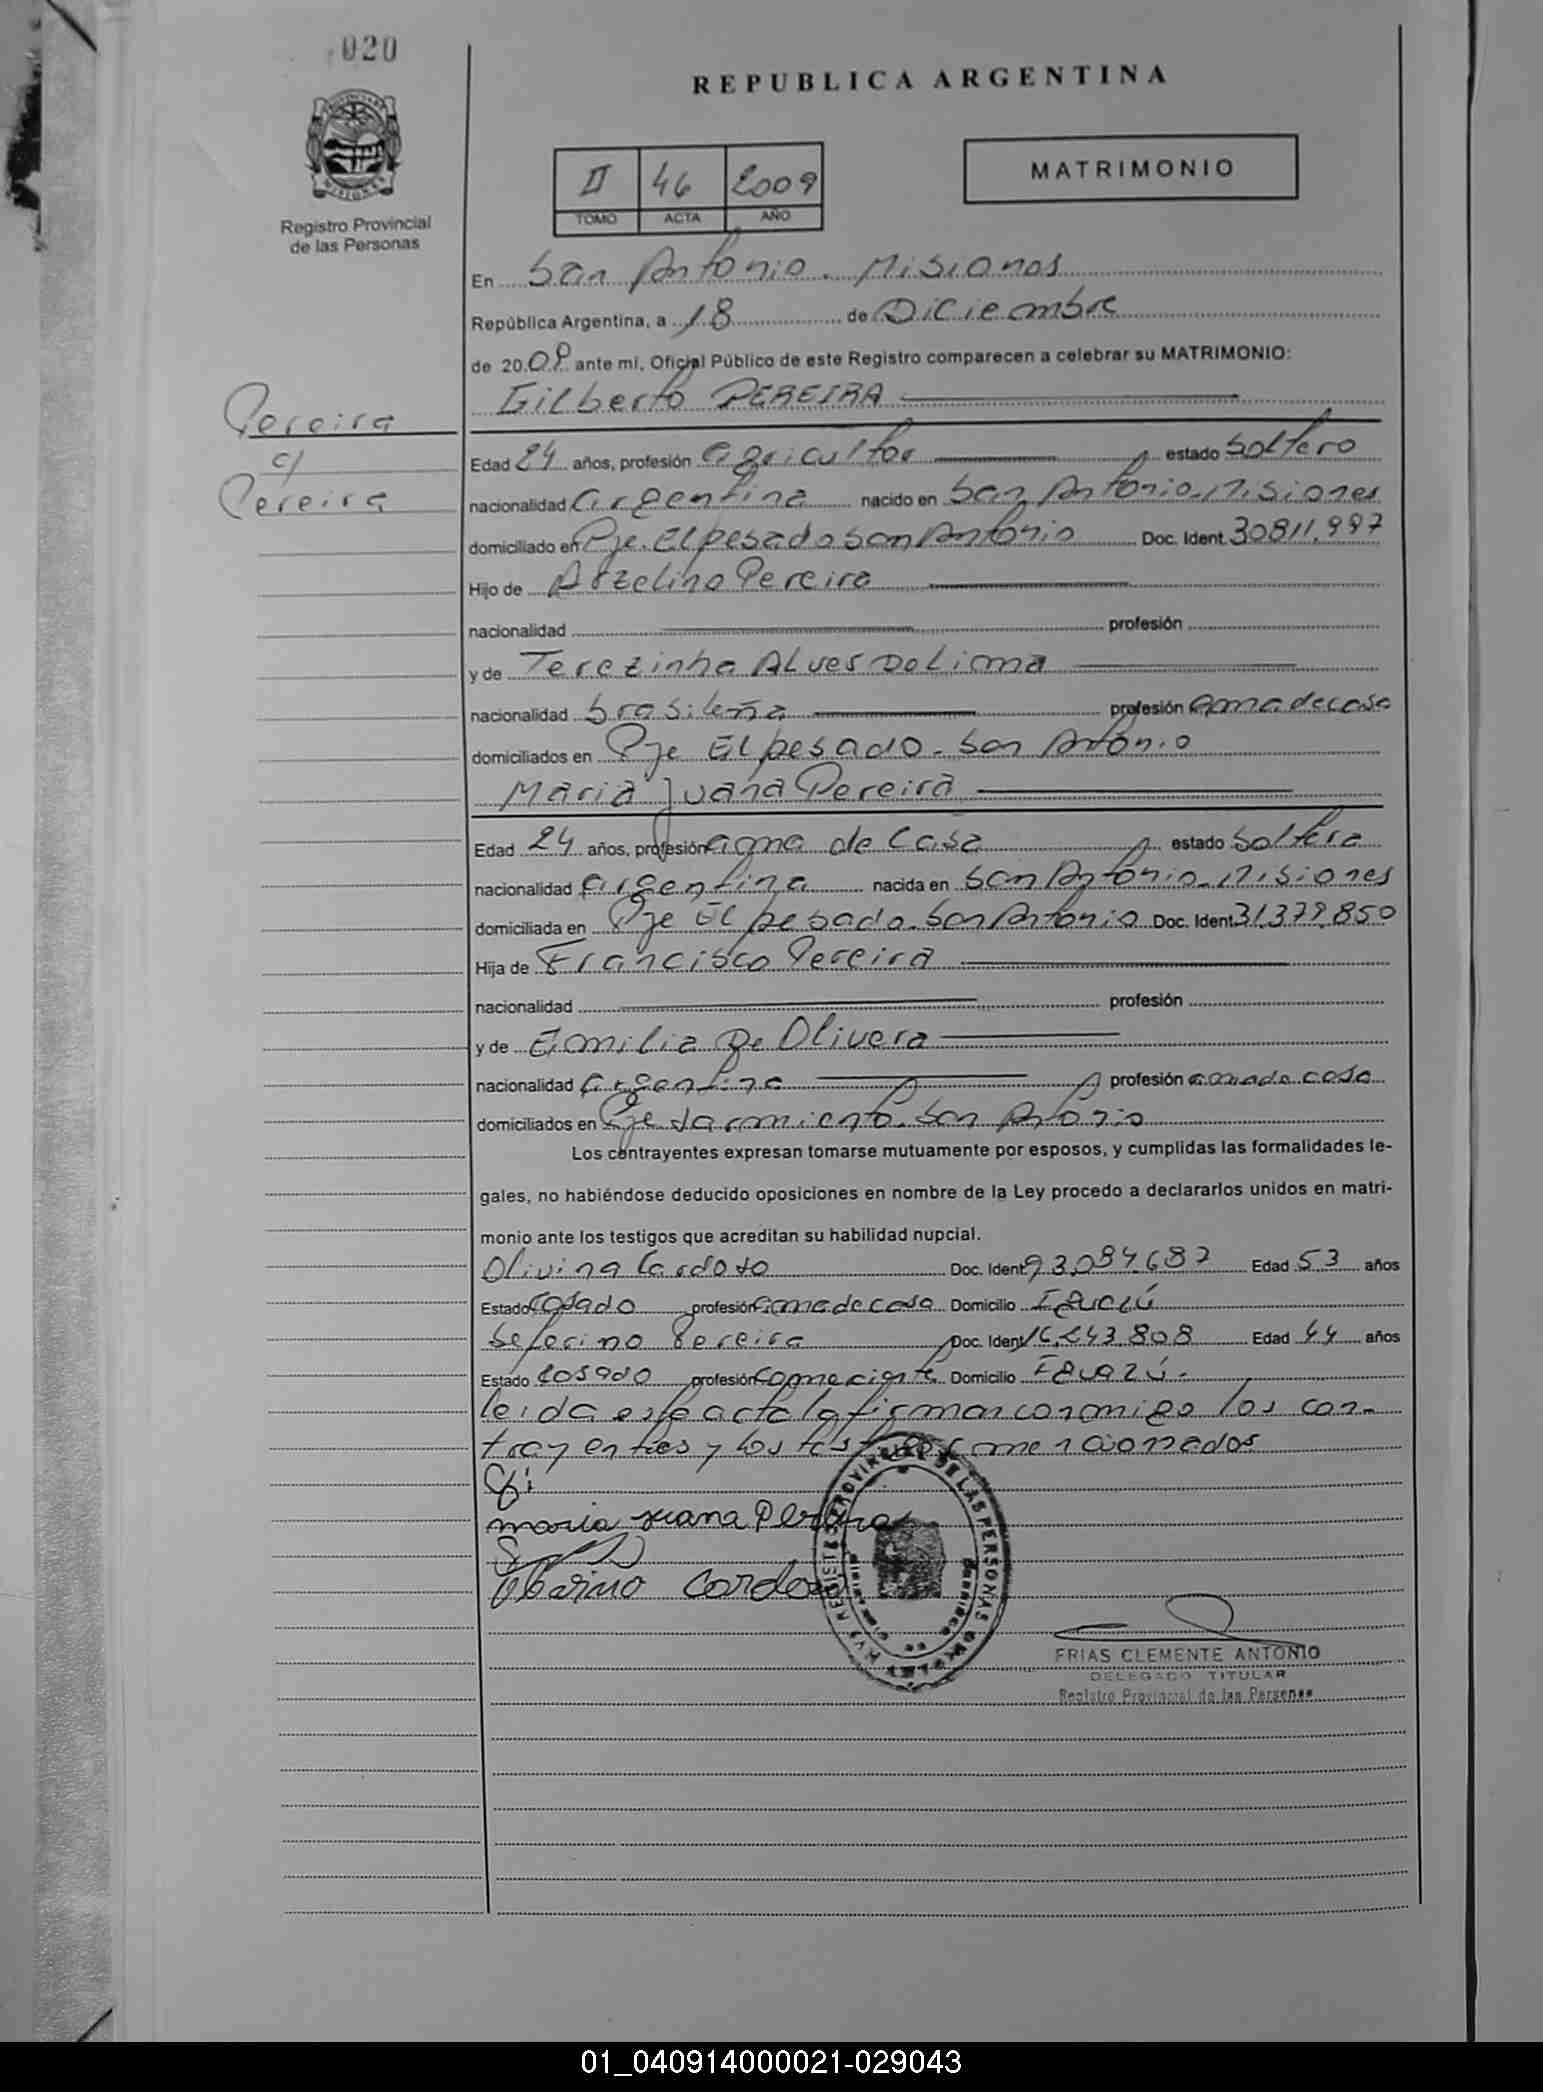 020
REPUBLICA ARGENTINA
MATRIMONIO
II 46 2009
TOMO ACTA AÑO
Registro Provincial
de las Personas
En San Antonio. Misiones
República Argentina, a 18 de Diciembre
de 2009 ante mí, Oficial Público de este Registro comparecen a celebrar su MATRIMONIO:
Gilberto PEREIRA
Pereira
c/
Pereira
Edad 24 años, profesión agricultor estado Soltero
nacionalidad argentina nacido en San Antonio. Misiones
domiciliado en Pje. El pesado San Antonio Doc. Ident. 30811.997
Hijo de Arzelino Pereira
nacionalidad profesión
y de Terezinha ALves De Lima
nacionalidad brasileña profesión ama de casa
domiciliados en Pje El pesado. San Antonio
Maria Juana Pereira
Edad 24 años, profesión ama de casa estado Soltera
nacionalidad argentina nacida en San Antonio. Misiones
domiciliada en Pje El pesado. San Antonio Doc. Ident. 31.379.850
Hija de Francisco Pereira
nacionalidad profesión
y de Emilia De Olivera
nacionalidad argentina profesión ama de casa
domiciliados en Pje Sarmiento. San Antonio
Los contrayentes expresan tomarse mutuamente por esposos, y cumplidas las formalidades le-
gales, no habiéndose deducido oposiciones en nombre de la Ley procedo a declararlos unidos en matri-
monio ante los testigos que acreditan su habilidad nupcial.
Olivina Cardozo Doc. Ident. 93.084.687 Edad 53 años
Estado casado profesión ama de casa Domicilio Iguazú
Seferino Pereira Doc. Ident. 16.243.808 Edad 44 años
Estado casado profesión comerciante Domicilio Iguazú.
leida este acta la firman conmigo los con-
trayentes y los testigos mencionados
maria juana Pereira
Cardozo
FRIAS CLEMENTE ANTONIO
DELEGADO TITULAR
Registro Provincial de las Personas
01_040914000021-029043